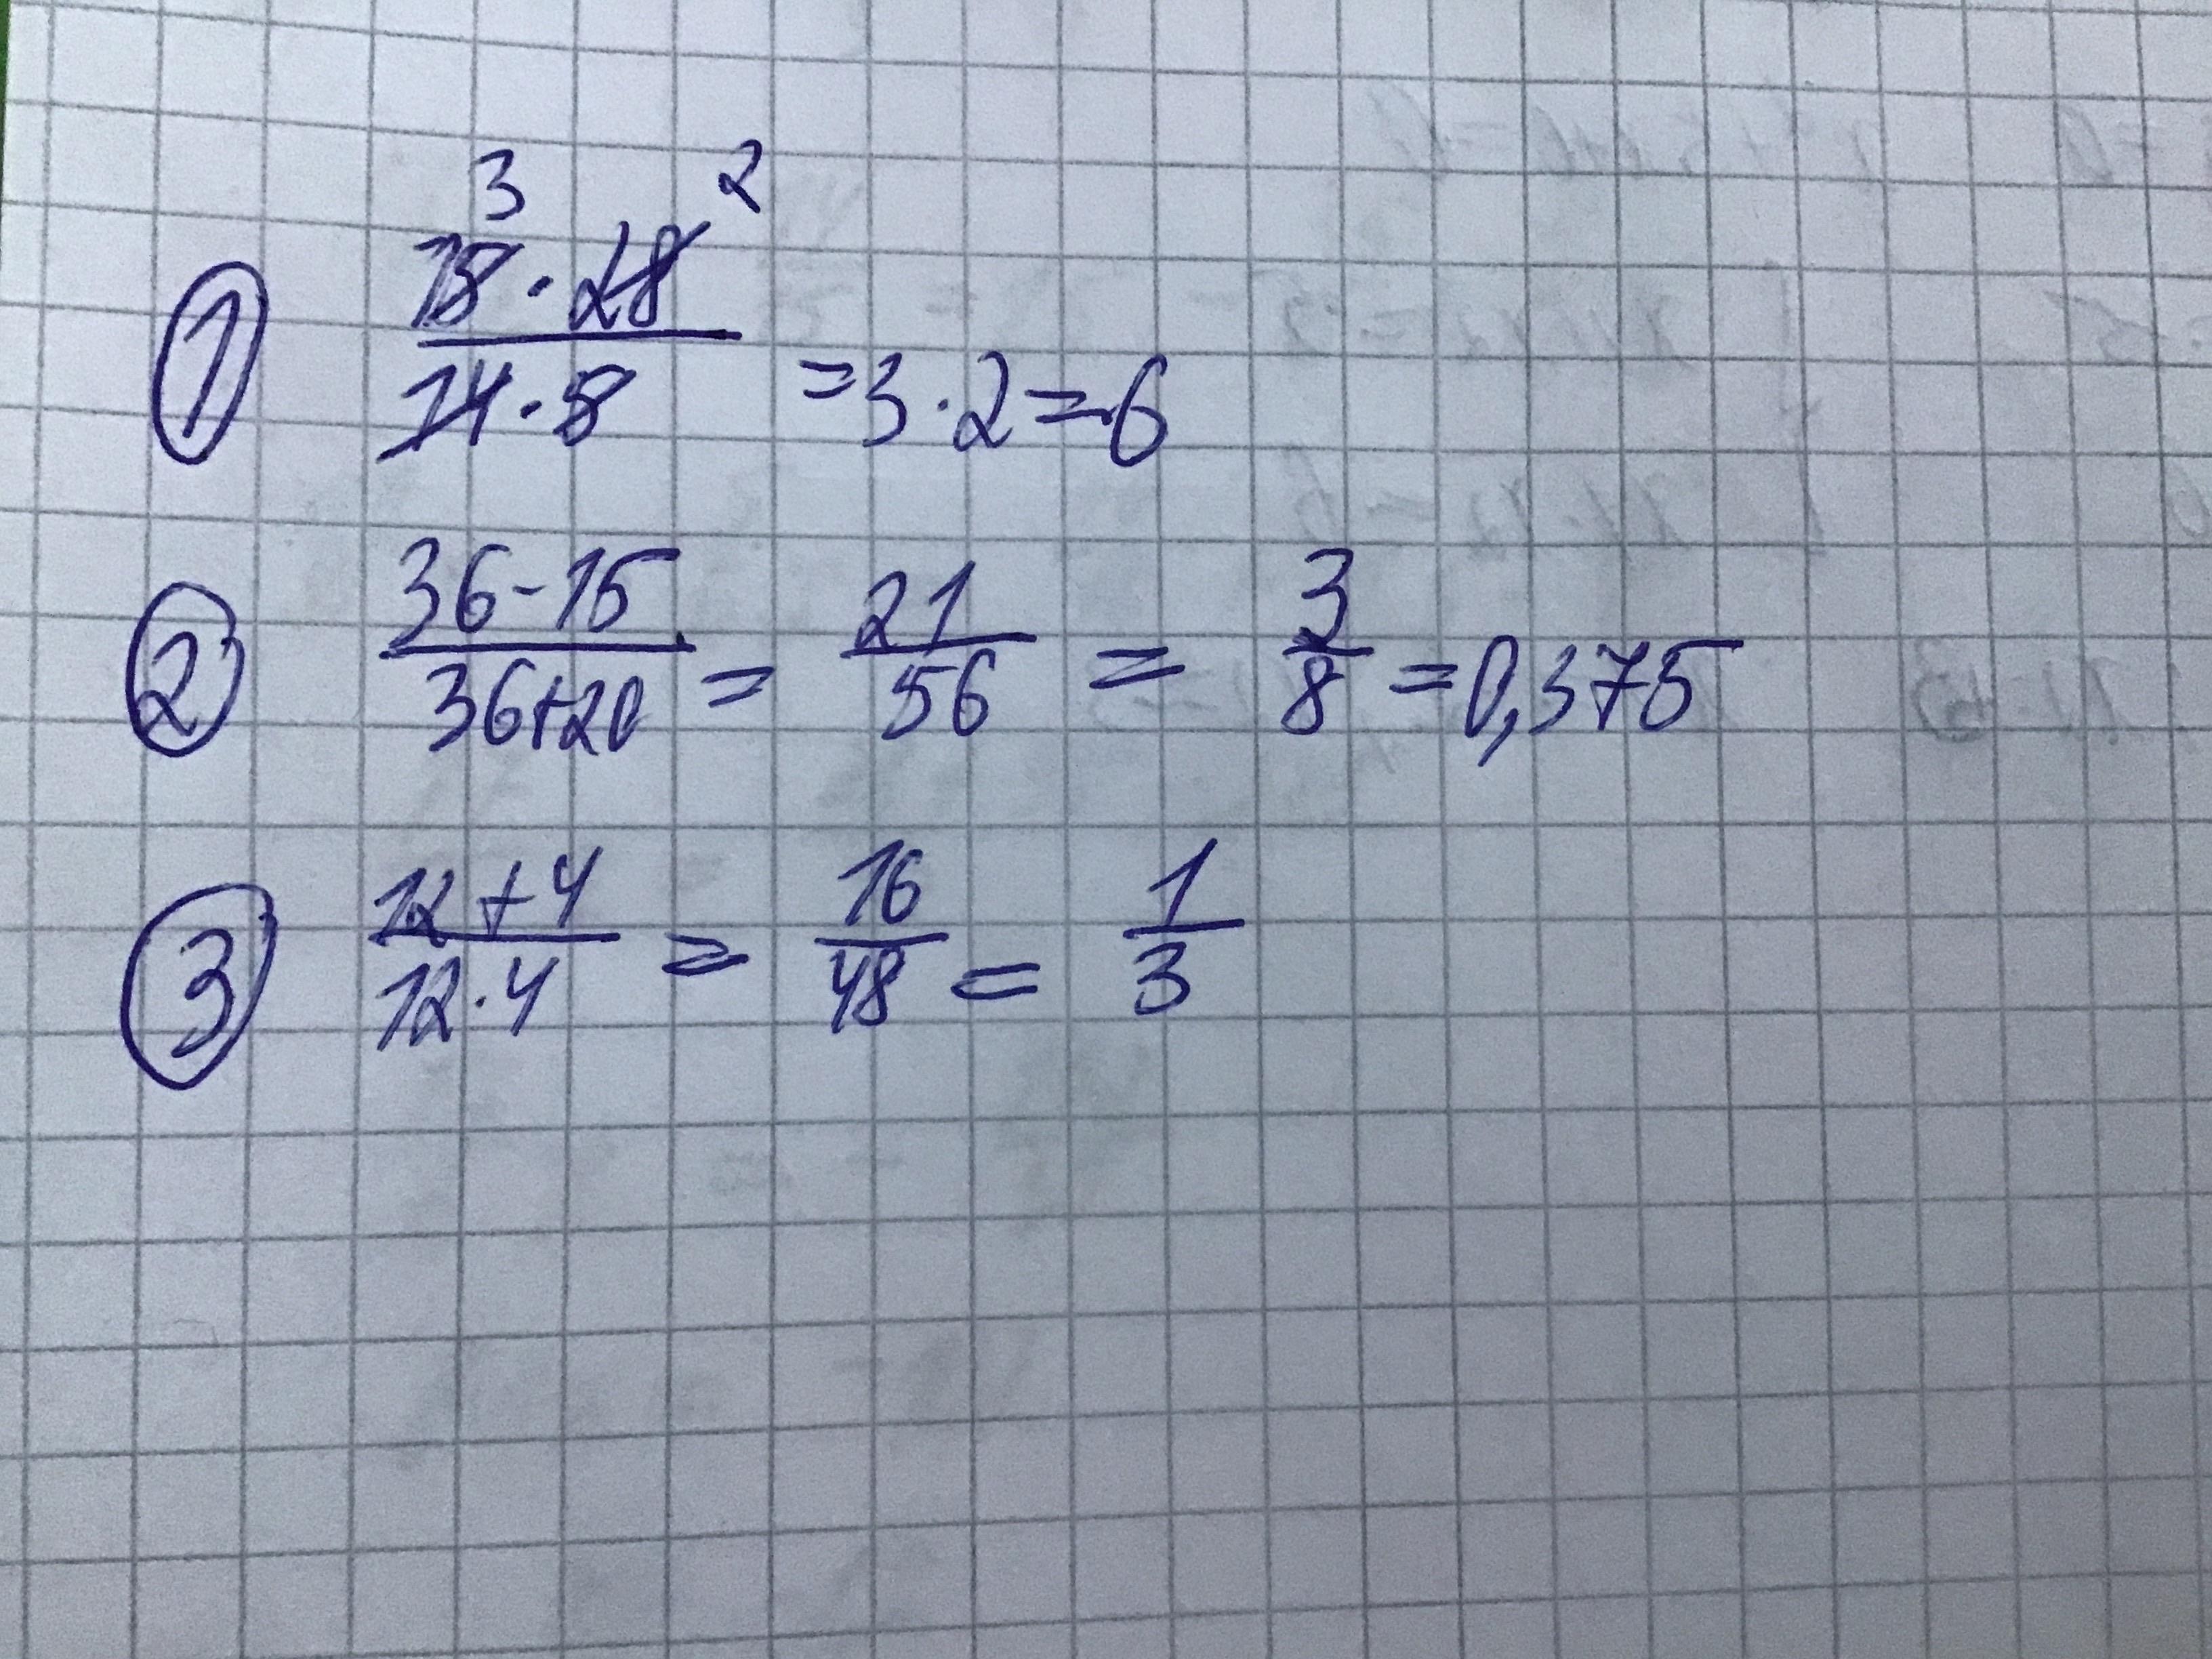 3 2
① 15 · 28 / 14 · 5 = 3 · 2 = 6
② 36 - 15 / 36 + 20 = 21 / 56 = 3 / 8 = 0,375
③ 12 + 4 / 12 · 4 = 16 / 48 = 1 / 3